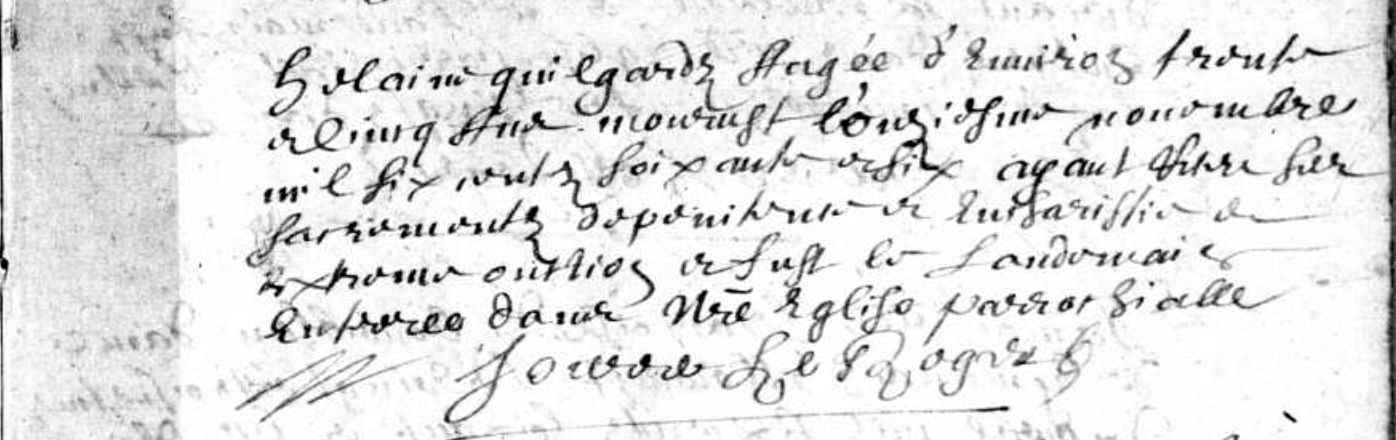 helaine quilgardz Aagée d'Environ trente
et Cinq Ans mourust l'onziesme nouembre
mil six centz soixante et six ayant
sacrementz de penitence et Eucharistie et
Extreme onction et fust le landemain
Enterree dans Nrē Eglise parrochialle